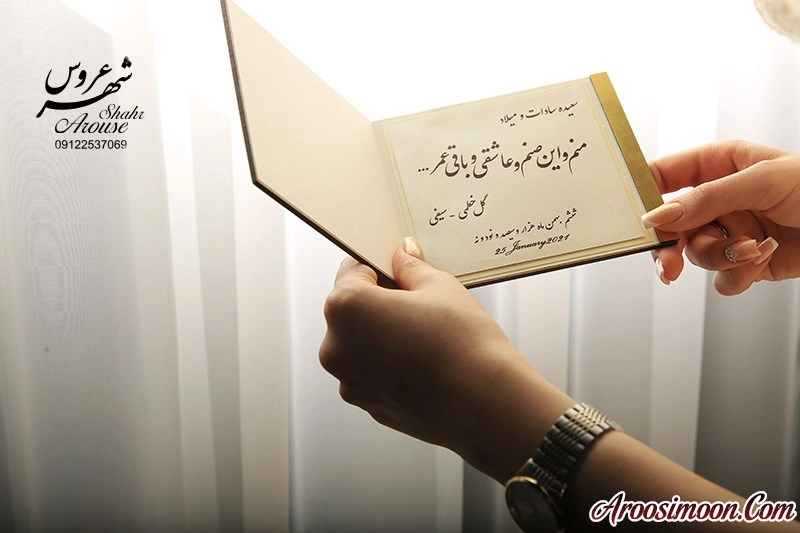 شهر عروس
Shahr
Arouse
09122537069
سعیده سادات و میلاد
منم و این صنم و عاشقی و باقی عمر ...
گل خطمی - سیفی
ششم بهمن ماه هزار و سیصد و نود و نه
25 January 2021
Aroosimoon.Com